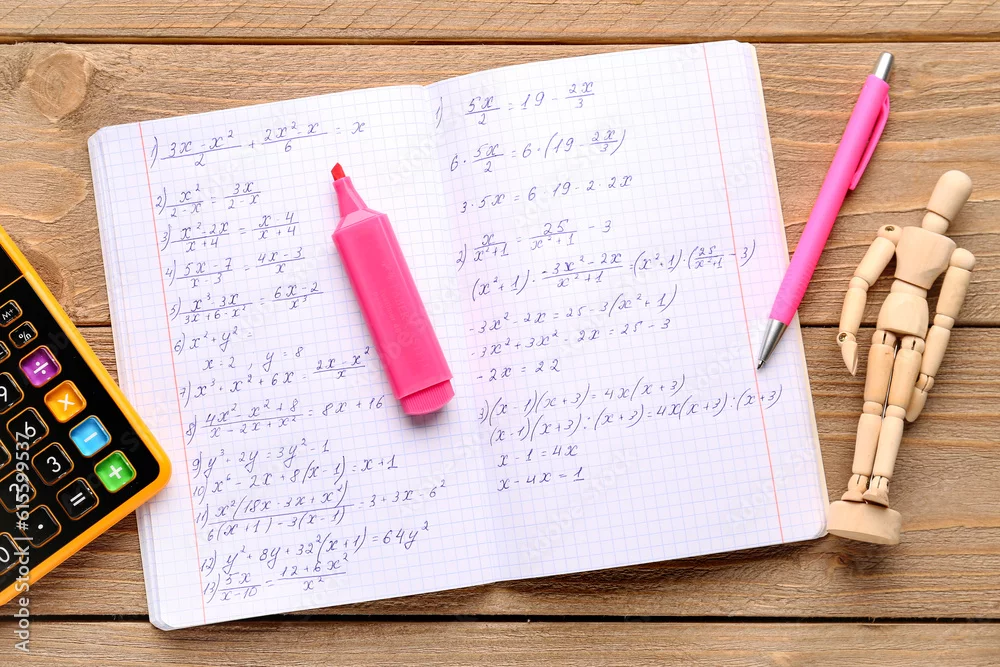 1) (3x - x²)/2 + (2x² - x)/6 = x
2) x²/(2 - x) = 3x/(2 - x)
3) (x² - 2x)/(x + 4) = (x - 4)/(x + 4)
4) (5x - 7)/(x - 3) = (4x - 3)/x
5) (x³ - 3x)/(3x + 6 - x²) = (6x - 2)/x³
6) x² + y² =
x = 2, y = 8
7) x³ + x² + 6x = (2x - x²)/x
8) (4x² - x² + 8)/(x - 2x + x²) = 8x + 16
9) y³ + 2y = 3y² - 1
10) x⁶ - 2x + 8(x - 1) = x + 1
11) x²(18x - 3x + x²)/(6(x + 1) - 3(x - 1)) = 3 + 3x - 6²
12) y² + 8y + 32²(x + 1) = 64y²
13) 5x/(x - 10) = (12 + 6x²)/x²
1) 5x/2 = 19 - 2x/3
6 · 5x/2 = 6 · (19 - 2x/3)
3 · 5x = 6 · 19 - 2 · 2x
2) x/(x² + 1) = 25/(x² + 1) - 3
(x² + 1) · (-3x² - 2x)/(x² + 1) = (x² + 1) · (25/(x² + 1) - 3)
-3x² - 2x = 25 - 3(x² + 1)
-3x² + 3x² - 2x = 25 - 3
-2x = 22
3) (x - 1)(x + 3) = 4x(x + 3)
(x - 1)(x + 3) : (x + 3) = 4x(x + 3) : (x + 3)
x - 1 = 4x
x - 4x = 1
M+
%
÷
9
×
6
−
3
+
2
=
.
0
Adobe Stock | 615399537